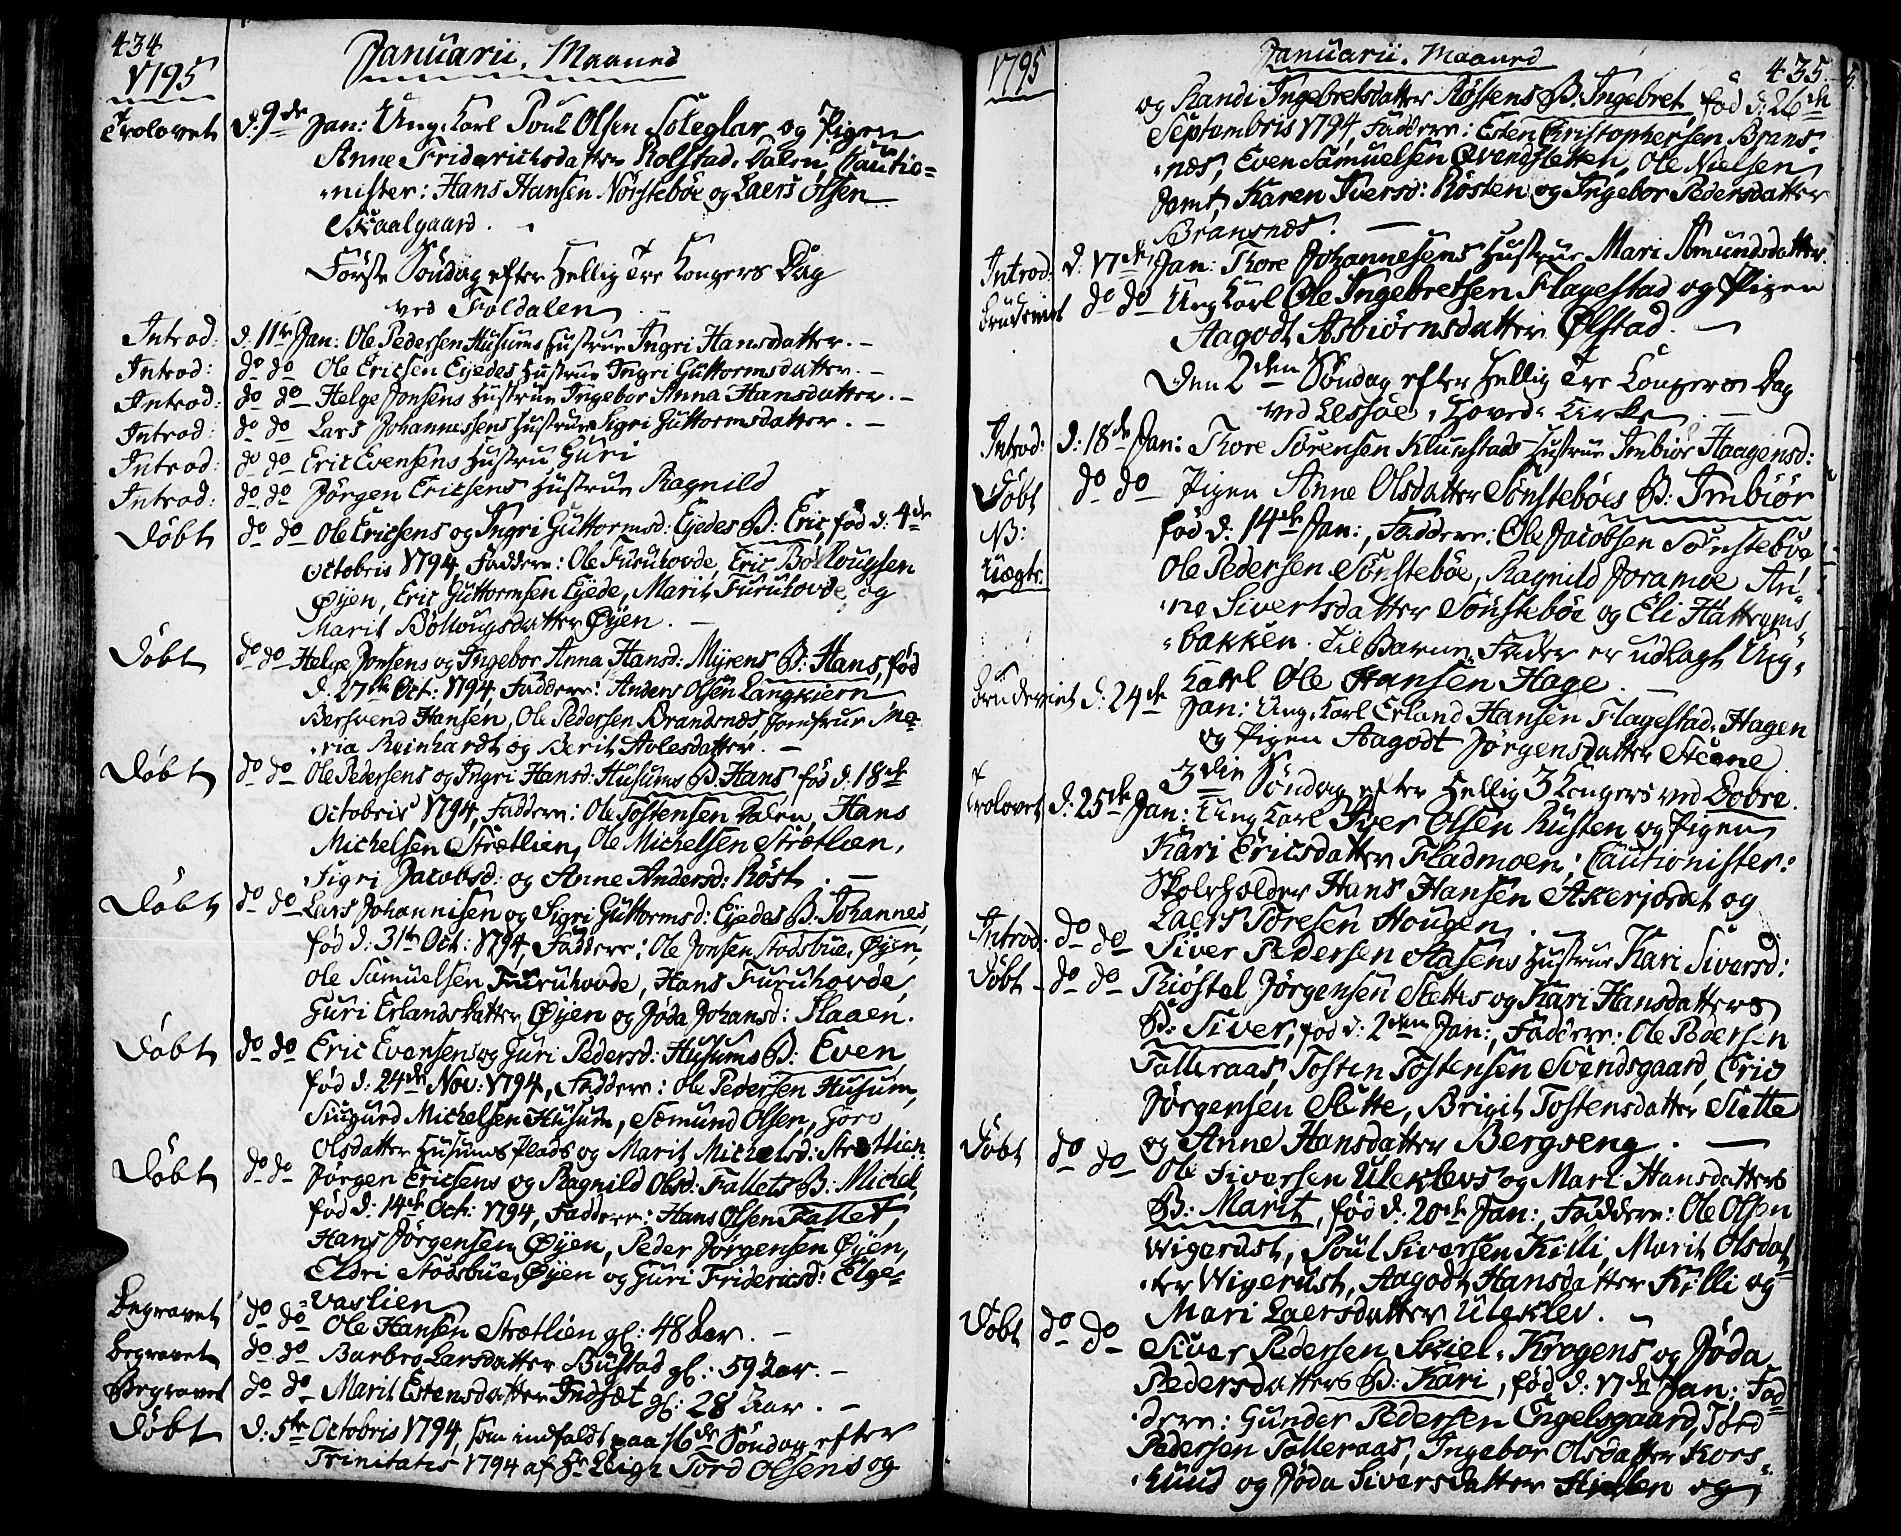 434
1795
Januarii Maaned
Trolovet d: 9de Jan: Ung Karl Poul Olsen Soleglar og Pigen
Anne Friderichsdatter Rolstad-Dalen, Cautio=
nister: Hans Hansen Nørstebøe og Laers Olsen
Skaalgaard.
Første Søndag efter Hellig Tre Kongers Dag
ved Foldalen
Introd: d. 11te Jan: Ole Pedersen Husums Hustrue Ingri Hansdatter. —
Introd: do do Ole Ericsen Eyedes Hustrue Ingri Guttormsdatter. —
Introd: do do Helge Jonsens Hustrue Ingebor Anna Hansdatter. —
Introd: do do Lars Johannessens Hustrue Sigri Guttormsdatter. —
Introd: do do Eric Evensens Hustru Guri
Introd: do do Jørgen Ericsens Hustrue Ragnild
Døbt do do Ole Ericsens og Ingri Guttormsd: Eyedes B: Eric, fød d: 4de
Octobris 1794, Faddere: Ole Furuhovde, Eric Bøllougsen
Øyen, Eric Guttormsen Eyede, Marit Furuhovde og
Marit Bøllougsdatter Øyen. —
Døbt do do Helge Jonsens og Ingebor Anna Hansd: Myrens B: Hans, fød
d: 27de Oct: 1794, Faddere: Anders Olsen Langkiern
Bersvend Hansen, Ole Pedersen Brandsnæs, Jomfrue Ma=
ria Reinhardt og Berit Avlesdatter. —
Døbt do do Ole Pedersens og Ingri Hansd: Husums B: Hans fød d: 18de
Octobris 1794, Faddere: Ole Tostensen Dalen, Hans
Michelsen Strætlien, Ole Michelsen Strætlien,
Sigri Jacobsd: og Anne Andersd: Røst. —
Døbt do do Lars Johannisen og Sigri Guttormsd: Eyedes B: Johannes,
fød d: 31te Oct: 1794, Faddere: Ole Jonsen Stodsbue-Øyen,
Ole Samuelsen Furuhovde, Hans Furuhovde,
Guri Erlandsdatter Øyen og Jøda Johansd: Slaaen.
Døbt do do Eric Evensens og Guri Pedersd: Husums B: Even,
fød d: 24de Nov: 1794, Faddere: Ole Pedersen Husum,
Siugurd Michelsen Husum, Sæmund Olsen, Goro
Olsdatter Husums Plads og Marit Michelsd: Strætlien.
Døbt do do Jørgen Ericsens og Ragnild Olsd: Fallets B: Michel,
fød d: 14de Oct: 1794, Faddere: Hans Olsen Fallet,
Hans Jørgensen Øyen, Peder Jørgensen Øyen,
Eldri Stodsbue-Øyen og Guri Fridericsd: Elge=
vaslien
Begravet do do Ole Hansen Strætlien gl: 48 Aar. —
Begravet do do Barbro Larsdatter Bustad gl: 59 Aar. —
Begravet do do Marit Estensdatter Indset gl: 28 Aar. —
Døbt d: 5te Octobris 1794, som indfaldt paa 16de Søndag efter
Trinitatis 1794 af Hr Leigh Tord Olsens og
1795
Januarii Maaned
435.
og Randi Ingebretsdatter Røstens B: Ingebret, fød d: 26de
Septembris 1794, Faddere: Esten Christophersen Brans=
næs, Even Samuelsen Qvendsletten, Ole Nielsen
Jamt, Karen Iversd: Røsten og Ingebor Pedersdatter
Bransnæs. —
Introd: d: 17de Jan: Thore Johannesens Hustrue Mari Amundsdatter.
Brudeviet do do Ung Karl Ole Ingebretsen Flagestad og Pigen
Aagodt Asbiørnsdatter Ølstad. —
Den 2den Søndag efter Hellig Tre Kongers Dag
ved Lessøe-Hoved-Kirke. —
Introd: d: 18de Jan: Thore Sørensen Klunstads Hustrue Imbiør Haagensd:
Døbt do do Pigen Anne Olsdatter Sønstebøes B: Imbiør
NB: fød d: 14de Jan:, Faddere: Ole Jacobsen Sønstebøe,
Uægte. Ole Pedersen Sønstebøe, Ragnild Joramoe An=
ne Sivertsdatter Sønstebøe og Eli Hattrems=
bakken. Til Barne-Fader er udlagt Ung-
Karl Ole Hansen Hage. —
Brudeviet d: 24de Jan: Ung Karl Erland Hansen Flagestad-Hagen
og Pigen Aagodt Jørgensdatter Steene
3die Søndag efter Hellig 3 Kongers ved Dobre.
Trolovet d: 25de Jan: Ung Karl Iver Olsen Rusten og Pigen
Kari Ericsdatter Fladmoen; Cautionister:
Skoleholder Hans Hansen Akerjordet og
Laers Toresen Hougen. —
Introd: do do Siver Pedersen Hasens Hustrue Kari Siversd:
Døbt do do Kiøstel Jørgensen Slettes og Kari Hansdatters
B: Siver, fød d: 2den Jan:, Faddere: Ole Peersen
Talleraas, Tosten Tostensen Svendsgaard, Eric
Jørgensen Slette, Brigit Tostensdatter Slette
og Anne Hansdatter Bergseng. —
Døbt do do Ole Siversen Uleklevs og Mari Hansdatters
B: Marit, fød d: 20de Jan:, Faddere: Ole Olsen
Wigerust, Poul Siversen Killi, Marit Olsdat=
ter Wigerust, Aagodt Hansdatter Killi og
Mari Laersdatter Uleklev. —
Døbt do do Siver Pedersen Skiel-Krogens og Jøda
Pedersdatters B: Kari, fød d: 17de Jan: Fad=
dere: Gunder Pedersen Engelsgaard, Tord
Pedersen Talleraas, Ingebor Olsdatter Kors=
huus og Jøda Siversdatter Hielen og